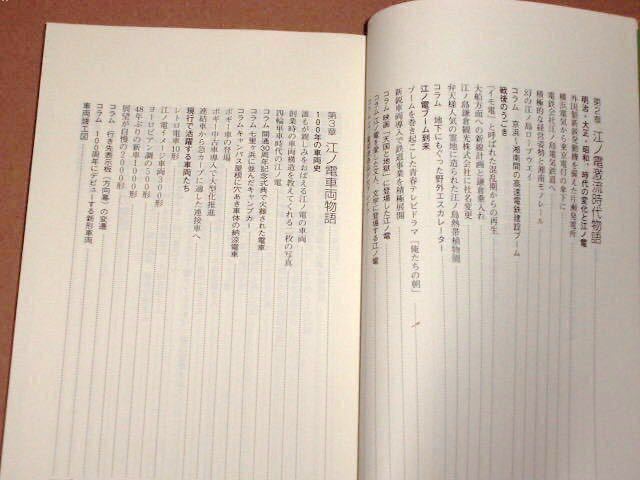 第2章 江ノ電激流時代物語
明治・大正・昭和・時代の変化と江ノ電
外国製最新発電機を備えた片瀬発電所
横浜電気から東京電灯の傘下に
電鉄会社江ノ島電気鉄道へ
積極的な経営姿勢と湘南モノレール
幻の江ノ島ロープウエイ
コラム 京浜〜湘南間の高速電鉄建設ブーム
戦後のうごき
「イモ電車」と呼ばれた混乱期からの再生
大船方面への新線計画と鎌倉乗入れ
江ノ島鎌倉観光株式会社に社名変更
弁天様人気の聖地に造られた江ノ島熱帯植物園
コラム 地下にもぐった野外エスカレーター
江ノ電ブーム到来
ブームを巻き起こした青春テレビドラマ「俺たちの朝」
新鋭車両導入で鉄道事業を積極展開
コラム 映画「天国と地獄」に登場した江ノ電
コラム 江ノ電を愛した文人、文学に登場する江ノ電
第3章 江ノ電車両物語
100年の車両史
誰もが親しみをおぼえる江ノ電の車両
創業時の車両構造を教えてくれる一枚の写真
四輪単車時代の江ノ電
コラム 開通30周年記念式典で火葬された電車
コラム 七里ヶ浜に並んだキャンプカー
コラム キャンバス屋根に穴あき車体の納涼電車
ボギー車の登場
ボギー中古車導入で大型化推進
連結車から急カーブに適した連接車へ
現行で活躍する車両たち
レトロ電車10形
江ノ電イメージ車両300形
ヨーロピアン調の500形
48年ぶりの新車1000形
展望席が自慢の2000形
コラム 行き先表示板（方向幕）の変遷
コラム 100周年にデビューする新形車両
車両竣工図